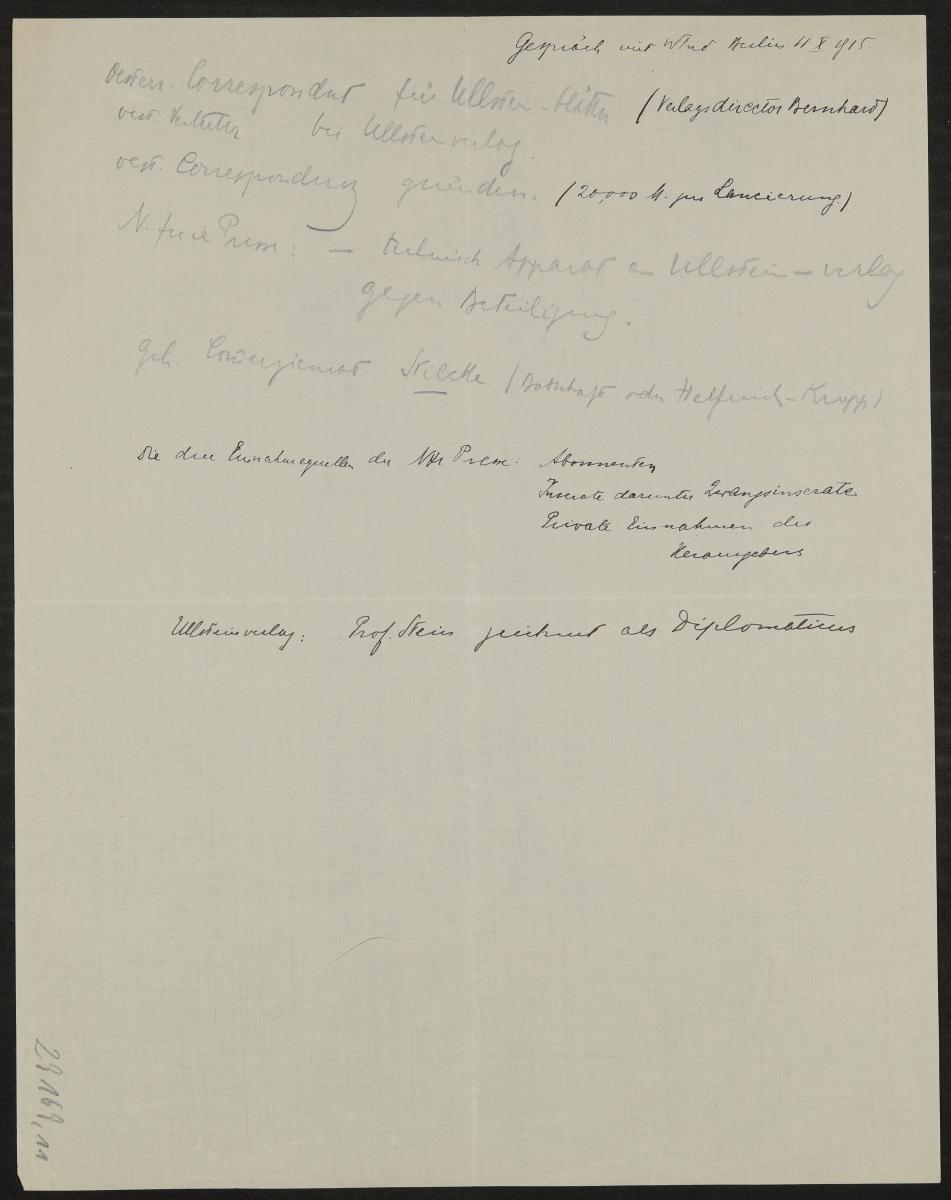 Gespräch mit Wind Berlin 4 X 1915.
Oesterr. Correspondent für Ullstein-blätter (Verlagsdirector Bernhard)
oest. Vertreter bei Ullsteinverlag.
oest. Correspondenz gründen. (20,000 M. zur Lancierung.)
N. freie Presse: — technisch Apparat an Ullstein-verlag
gegen Beteiligung.
Geh. Stilcke. (Botschaft oder Helfferich-Krupp)
Die drei Einnahmequellen der Presse: Abonnenten
Inserate darunter Zwangsinserate
Private Einnahmen des
Herausgebers
Ullsteinverlag: Prof. Stein zeichnet als Diplomaticus